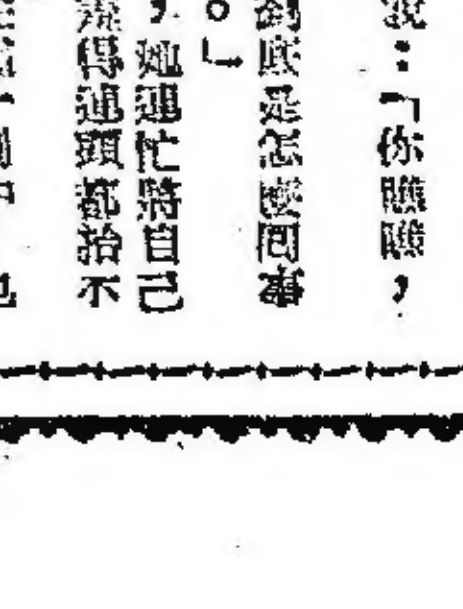 說：「你瞧瞧，
到底是怎麼回事
。」
，她連忙將自己
得連頭都抬不